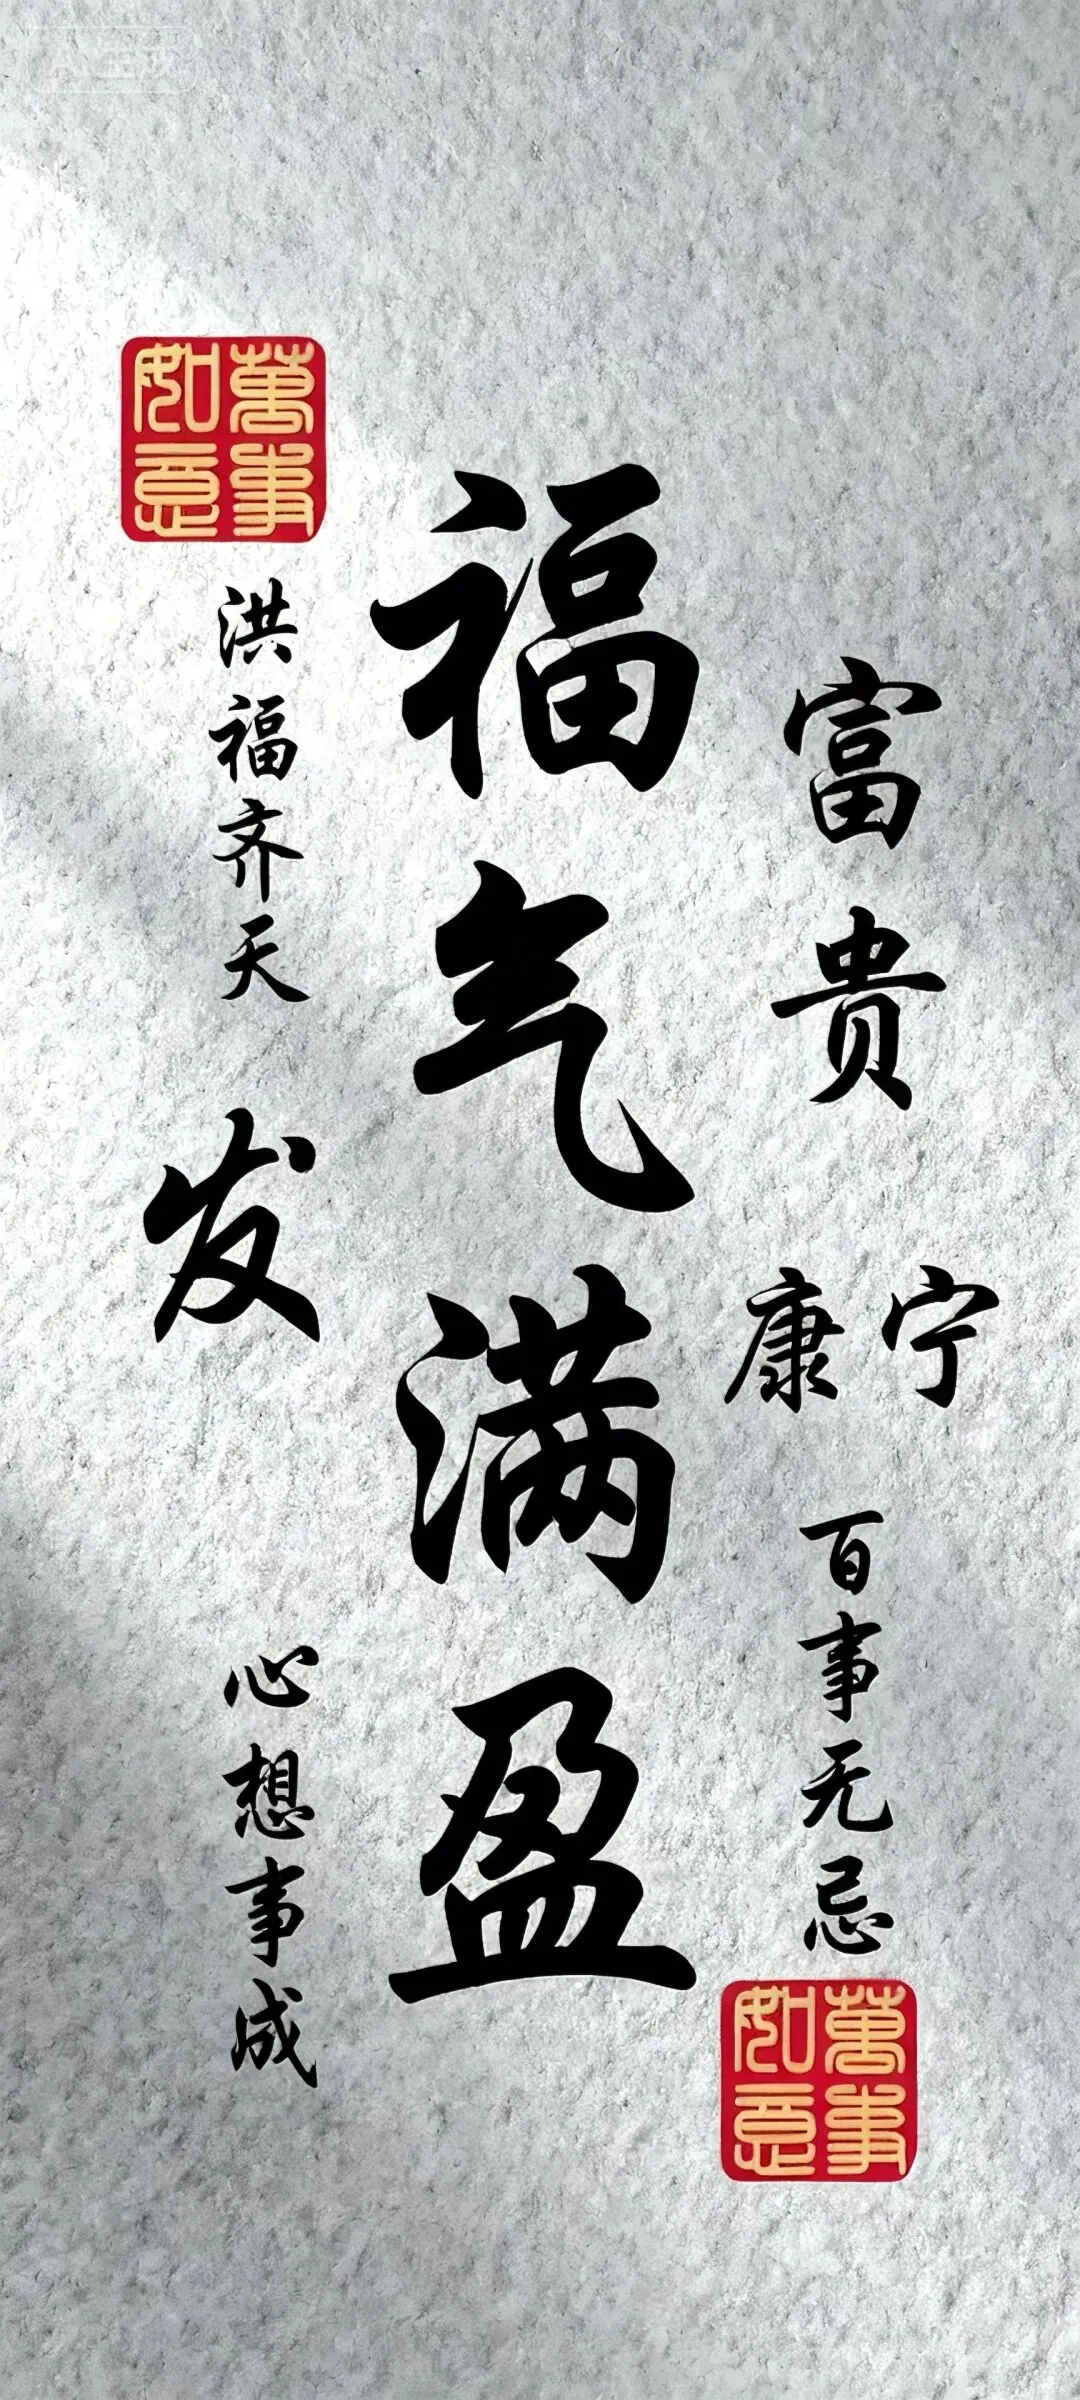 萬事如意
洪福齐天
发
心想事成
福气满盈
富贵
康宁
百事无忌
萬事如意